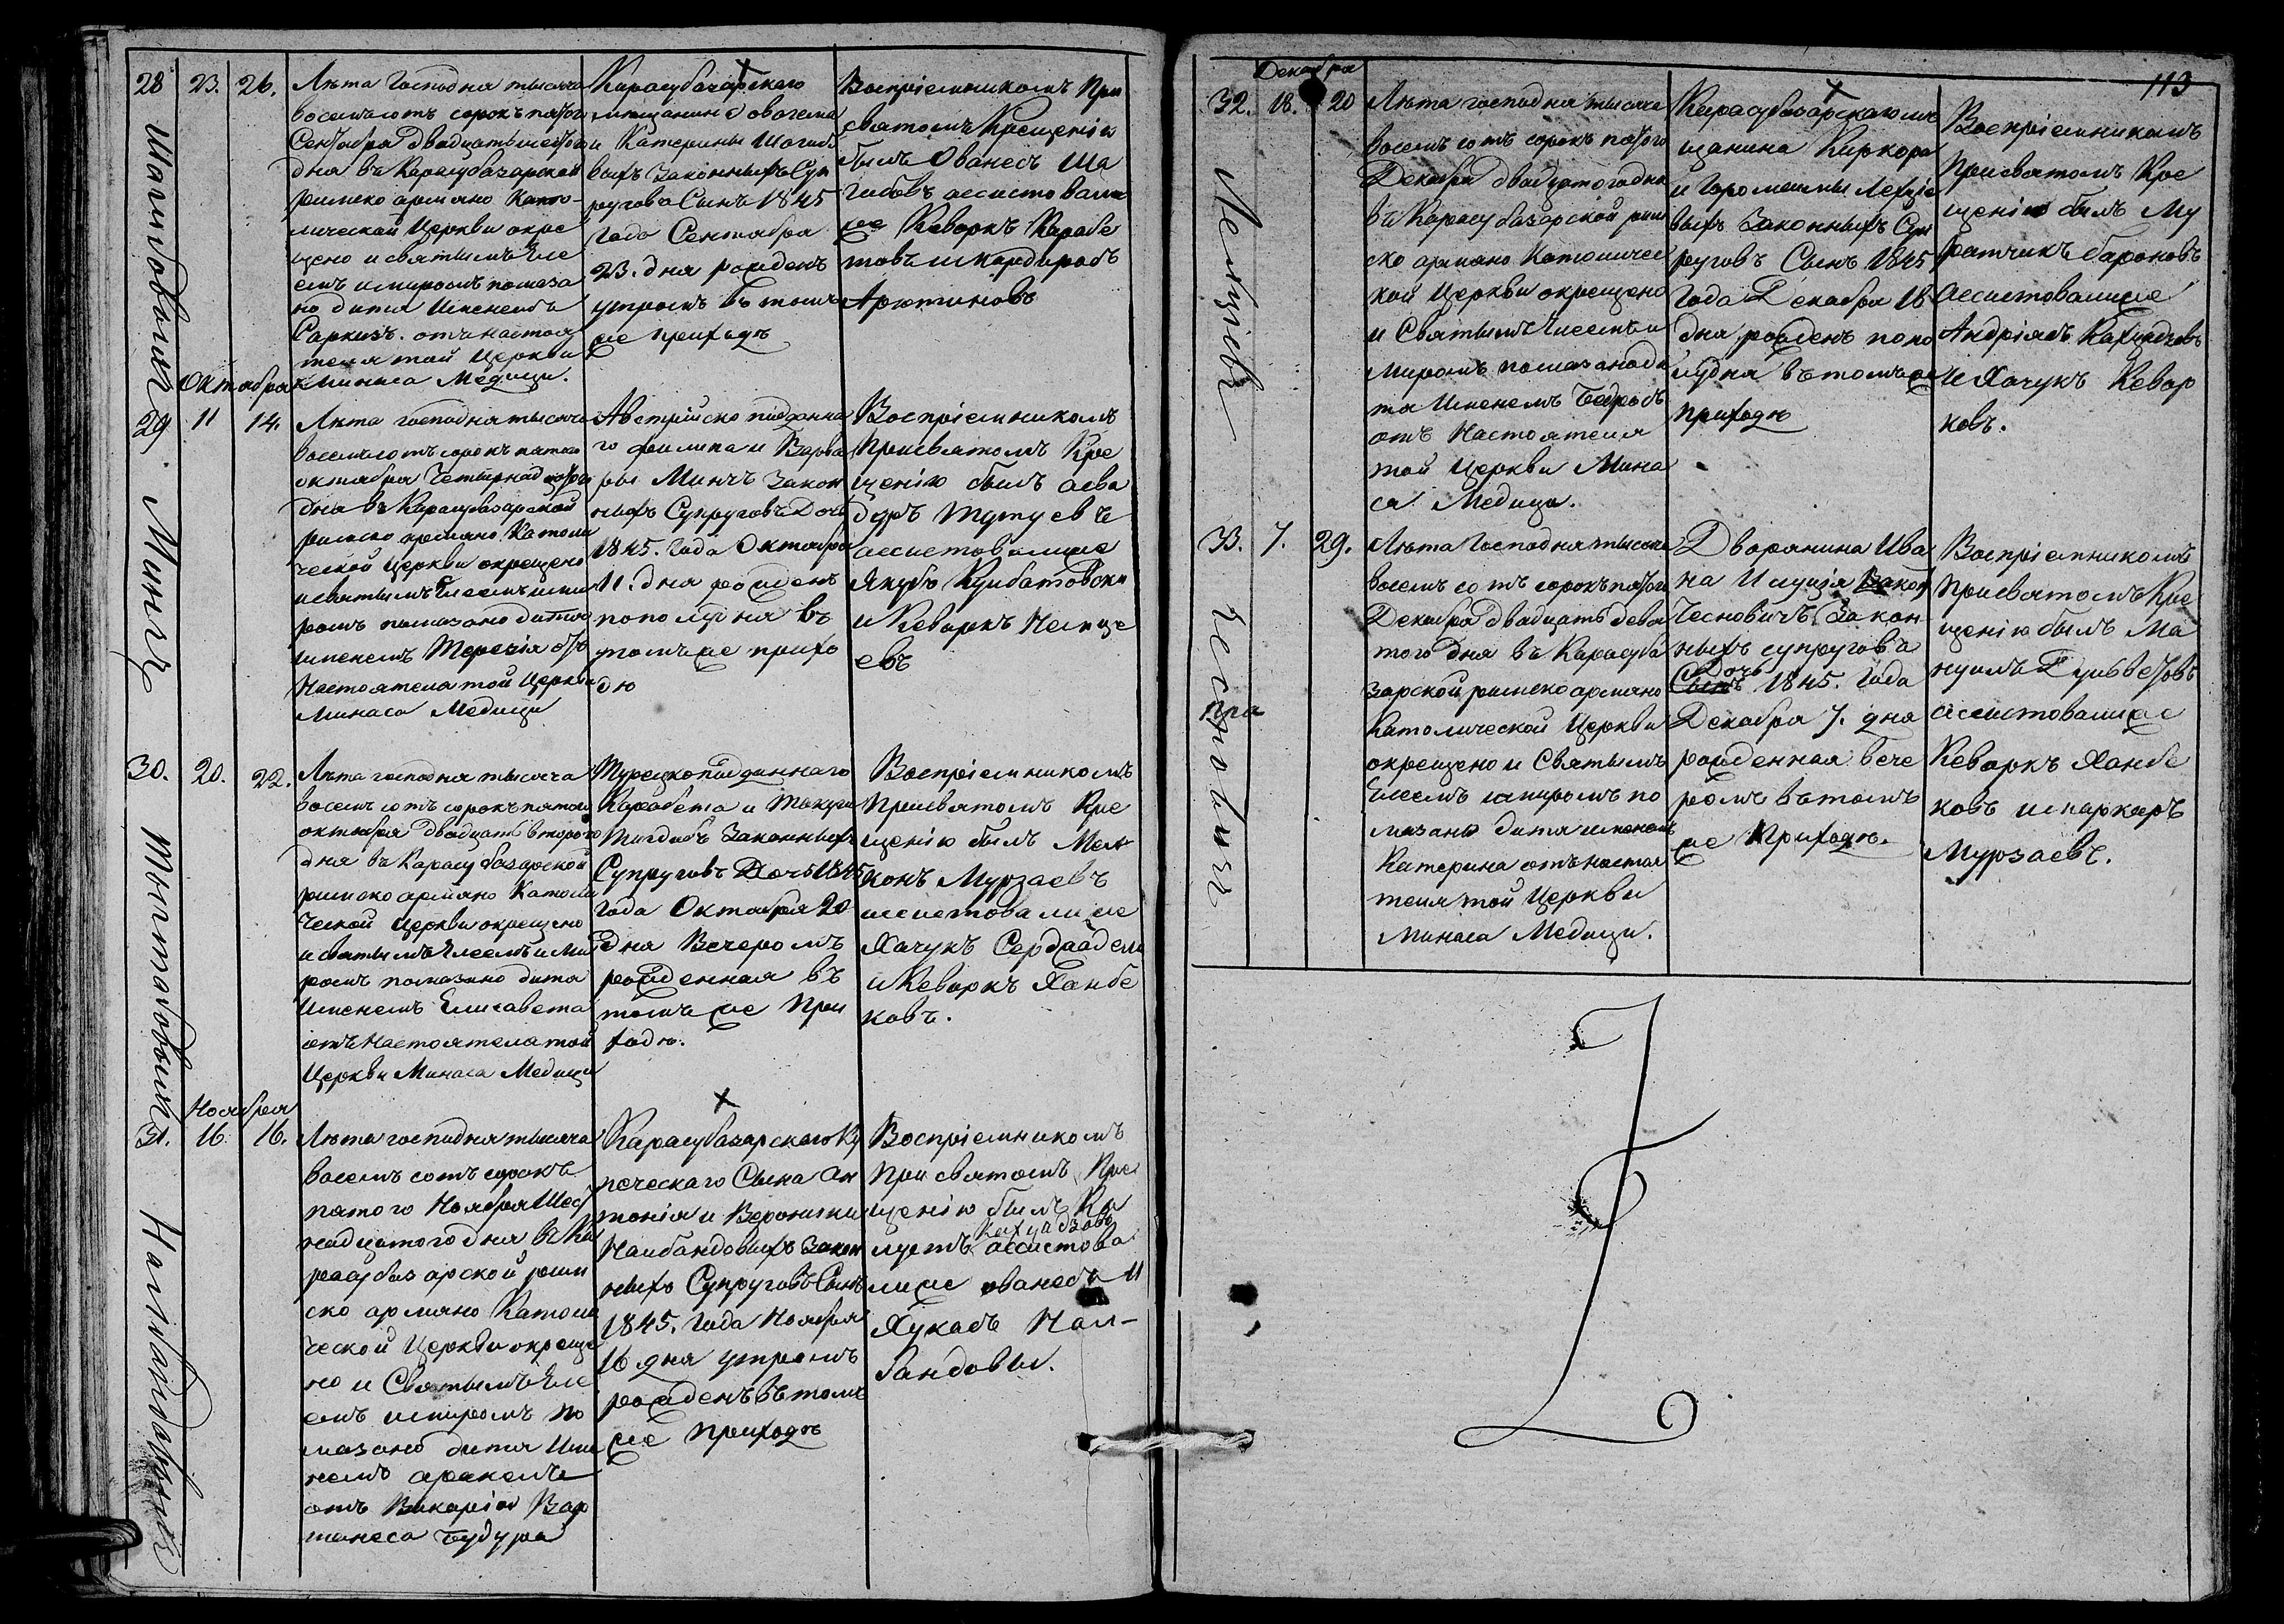 28
23.
26.
Лѣта Господня тысяча
восемьсотъ сорокъ пятого
Сентября двадцать шестого
дня въ Карасубазарской
римско армяно Като-
лической Церкви окре
щено и святымъ Еле
емъ и миромъ помаза
но дитя Именемъ
Саркизъ. отъ настоя
теля той Церкви
Минаса Медици.
Карасубазарского
мещанина Овагема
и Катерины Шагибо
выхъ Законныхъ Суп
руговъ Сынъ 1845
года Сентября
23. дня рожденъ
утромъ въ томъ
же приходѣ
Воспріемникомъ При
святомъ Крещенію
былъ Ованесъ Ша
гибовъ ассистовали
же Кеворкъ Карабе
товъ и
Арютиновъ
Октября
29
11
14.
Лѣта господня тысяча
восемьсотъ сорокъ пятого
октября Четырнадцатого
дня въ Карасубазарской
римско армяно Католи
ческой Церкви окрещено
и святымъ Елеемъ и ми
ромъ помазано дитя
именемъ Терезія отъ
Настоятеля той Церкви
Минаса Медици
Австрійско подданна
го Филипа и Варва
ры Минчъ Закон
ныхъ Супруговъ Дочь
1845. Года Октября
11. дня рожденъ
пополудня въ
томъ же прихо
дѣ
Воспріемникомъ
Присвятомъ Кре
щенію былъ Асва
дуръ Тутуевъ
ассистовалиже
Якубъ
и Кеворкъ
евъ
Минчъ
30.
20.
22.
Лѣта господня тысяча
восемьсотъ сорокъ пятого
октября двадцать второго
дня въ Карасубазарской
римско армяно Католи
ческой Церкви окрещено
и святымъ Елеемъ и Ми
ромъ помазано дитя
Именемъ Елисавета
отъ Настоятеля той
Церкви Минаса Медици
Турецкоподданнаго
Карабета и
Законныхъ
Супруговъ Дочь 1845
года Октября 20
дня Вечеромъ
рожденная въ
томъ же При
ходѣ.
Воспріемникомъ
Присвятомъ Кре
щенію былъ Мел
конъ Мурзаевъ
ассистовалиже
Хачукъ
и Кеворкъ Ханбе
ковъ.
Ноября
31.
16.
16.
Лѣта господня тысяча
восемьсотъ сорокъ
пятого Ноября Шест
надцатого дня въ Ка
расубазарской рим
ско армяно Католи
ческой Церкви окреще
но и Святымъ Еле
емъ и миромъ по
мазано дитя Име
немъ аракелъ
отъ Викарія Вар
танеса Будура
Карасубазарского Ку
печескаго Сына Ан
тонія и Вероники
Налбандовыхъ Закон
ныхъ Супруговъ Сынъ
1845. Года Ноября
16 дня утромъ
рожденъ въ томъ
же приходѣ
Воспріемникомъ
При святомъ Кре
щенію былъ Ка
лустъ ассистова
лиже ованесъ и
Лукасъ Нал-
бандовы.
113
Декабря
32.
18.
20
Лѣта господня тысяча
восемьсотъ сорокъ пятого
Декабря двадцатого дня
въ Карасубазарской рим
ско армяно Католичес
кой Церкви окрещено
и Святымъ Елеемъ и
миромъ помазано дя
тя Именемъ Бедросъ
отъ Настоятеля
той Церкви Мина
са Медици.
Карасубазарскаго ме
щанина Киркора
и
выхъ Законныхъ Суп
руговъ Сынъ 1845
Года Декабря 18
дня рожденъ попо
лудня въ томъ же
приходѣ
Воспріемникомъ
Присвятомъ Кре
щенію былъ Му
ратчикъ бароновъ
Ассистовалиже
Андріясъ
и Хачукъ Кевор
ковъ.
33.
7.
29.
Лѣта Господня тысяча
восемьсотъ сорокъ пятого
Декабря двадцать девя
того дня въ Карасуба
зарской римско армяно
Католической Церкви
окрещено и Святымъ
Елеемъ и миромъ по
мазано дитя именемъ
Катерина отъ настоя
теля той Церкви
Минаса Медици.
Дворянина Ива
на
Чесновичъ Закон
ныхъ супруговъ
Дочь
Сынъ 1845. Года
Декабря 7. дня
рожденная вече
ромъ въ томъ
же Приходѣ.
Воспріемникомъ
Присвятомъ Кре
щенію былъ Ма
нуилъ
Ассистовалиже
Кеворкъ Ханбе
ковъ и маркаръ
Мурзаевъ.
Чесновичъ